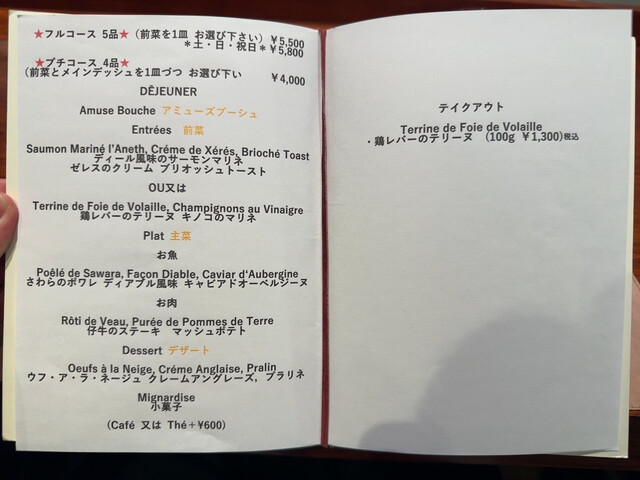 ★フルコース 5品★（前菜を1皿 お選び下さい）¥5,500
＊土・日・祝日＊¥5,800
★プチコース 4品★
（前菜とメインデッシュを1皿づつ お選び下い ¥4,000
DÊJEUNER
Amuse Bouche アミューズブーシュ
Entrées 前菜
Saumon Mariné l'Aneth, Créme de Xérés, Brioché Toast
ディール風味のサーモンマリネ
ゼレスのクリーム ブリオッシュトースト
OU又は
Terrine de Foie de Volaille, Champignons au Vinaigre
鶏レバーのテリーヌ キノコのマリネ
Plat 主菜
お魚
Poêlé de Sawara, Façon Diable, Caviar d'Aubergine
さわらのポワレ ディアブル風味 キャビアドオーベルジーヌ
お肉
Rôti de Veau, Purée de Pommes de Terre
仔牛のステーキ マッシュポテト
Dessert デザート
Oeufs à la Neige, Créme Anglaise, Pralin
ウフ・ア・ラ・ネージュ クレームアングレーズ, プラリネ
Mignardise
小菓子
(Café 又は Thé＋¥600)
テイクアウト
Terrine de Foie de Volaille
・鶏レバーのテリーヌ （100g ¥1,300)税込